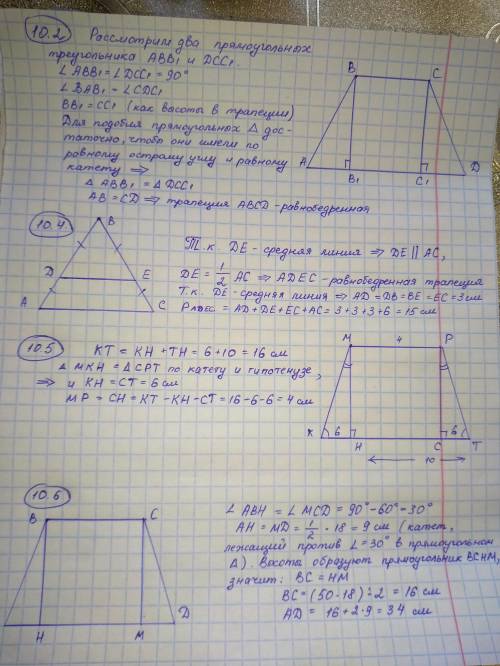 10.2 Рассмотрим два прямоугольных
треугольника ABB₁ и DCC₁.
∠ABB₁ = ∠DCC₁ = 90°
∠BAB₁ = ∠CDC₁
BB₁ = CC₁ (как высоты в трапеции)
Для подобия прямоугольных Δ дос-
таточно, чтобы они имели по
ровному острому углу и равному
катету ⇒
Δ ABB₁ = Δ DCC₁
AB = CD ⇒ трапеция ABCD - равнобедренная
B C
A B₁ C₁ D
10.4
B
D E
A C
Т.к. DE - средняя линия ⇒ DE || AC,
DE = 1/2 AC ⇒ ADEC - равнобедренная трапеция
Т.к. DE - средняя линия ⇒ AD = DB = BE = EC = 3 см
P ADEC = AD + DE + EC + AC = 3 + 3 + 3 + 6 = 15 см
10.5 KT = KH + TH = 6 + 10 = 16 см
Δ MKH = Δ CPT по катету и гипотенузе,
⇒ и KH = CT = 6 см
MP = CH = KT - KH - CT = 16 - 6 - 6 = 4 см
M 4 P
K 6 H C 6 T
10
10.6
B C
H M D
∠ABH = ∠MCD = 90° - 60° = 30°
AH = MD = 1/2 · 18 = 9 см (катет,
лежащий против ∠ = 30° в прямоугольном
Δ). Высоты образуют прямоугольник BCHM,
значит: BC = HM
BC = (50 - 18) : 2 = 16 см
AD = 16 + 2 · 9 = 34 см